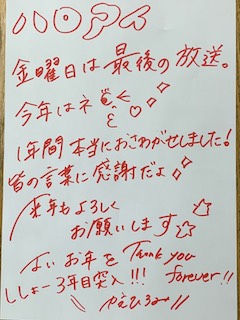 ハロアイ
金曜日は最後の放送。
今年はネ
1年間本当におさわがせしました!
皆の言葉に感謝だよ
来年もよろしく
お願いします
よいお年を Thank you
ししょー3年目突入!!! forever!!